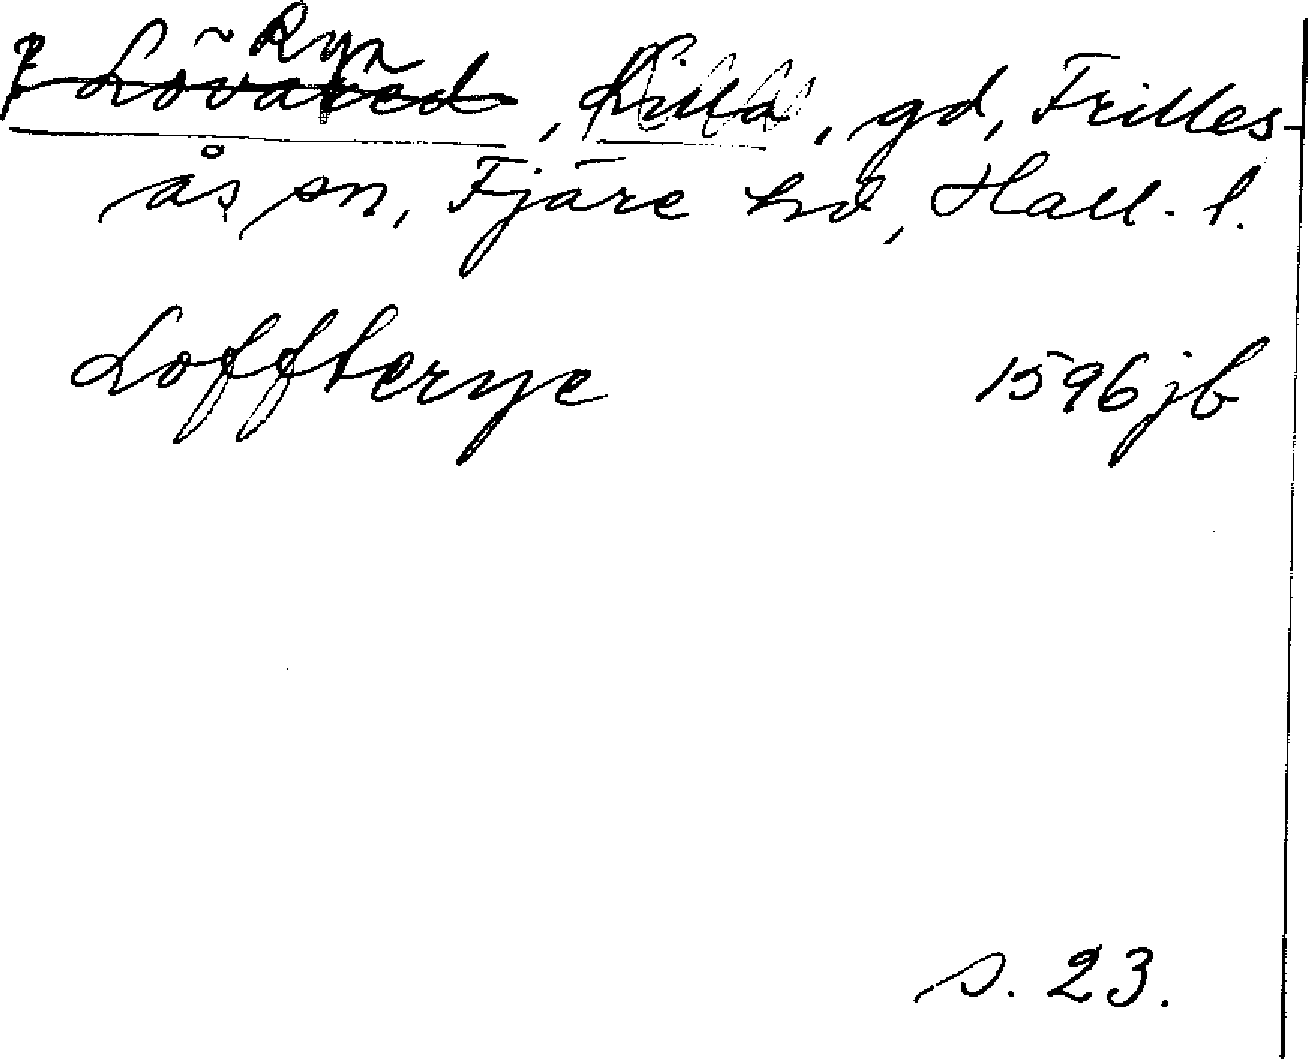 ~ Ryr
? Lövared, Lilla, gd, Frilles-
ås sn, Fjäre hd, Hall. l.
Loffterye 1596 jb
s. 23.